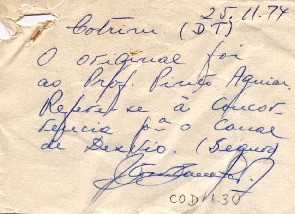 25.11.74
Cotrim. (DT)
O original foi
ao Prof. Pinto Aguiar.
Refere-se à concor-
rência p.ª o Canal
de Desvio. (Seguro)
COD 11.30